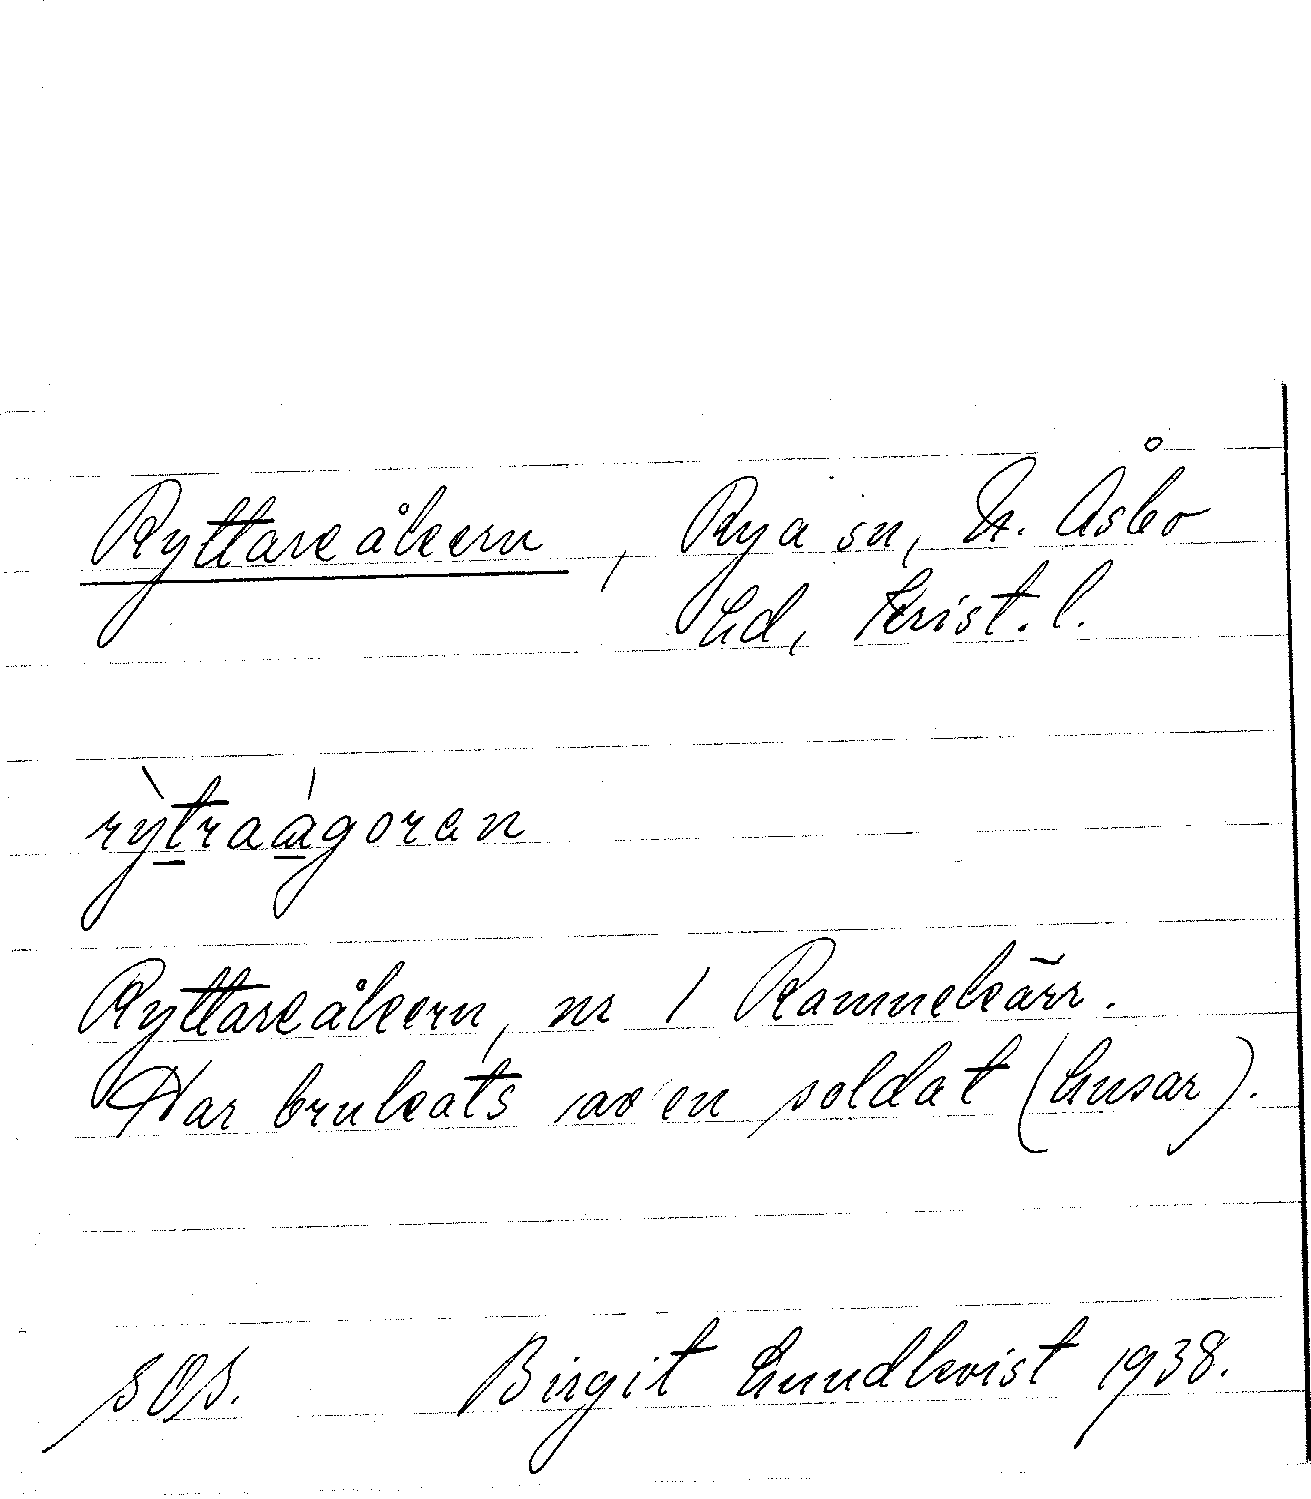 Ryttareåkern, Rya sn, N. Åsbo
hd, Krist. l.
rỳtraágoran
Ryttareåkern, nr 1 Ramnekärr.
Har brukats av en soldat (husar).
SOS. Birgit Lundkvist 1938.